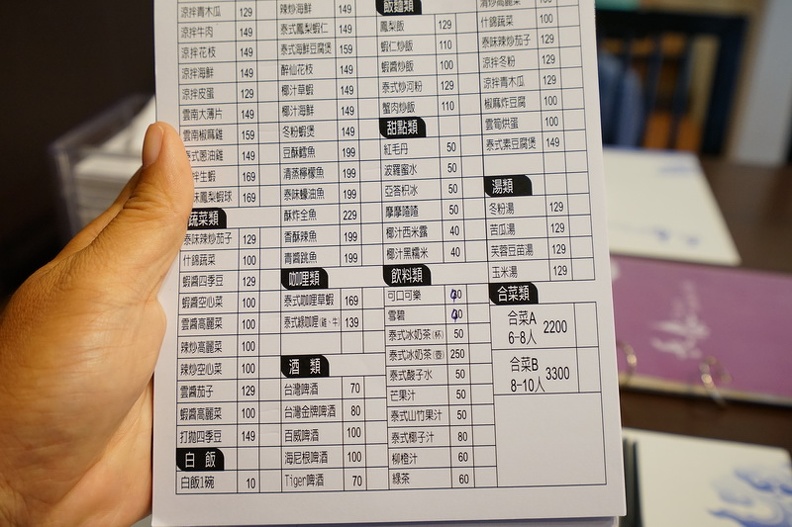 涼拌青木瓜 129
涼拌牛肉 149
涼拌花枝 149
涼拌海鮮 149
涼拌皮蛋 129
雲南大薄片 149
雲南椒麻雞 159
泰式蔥油雞 169
拌生蝦 169
味鳳梨蝦球 169
蔬菜類
泰味辣炒茄子 129
什錦蔬菜 100
蝦醬四季豆 129
蝦醬空心菜 100
雲醬高麗菜 100
辣炒高麗菜 100
辣炒空心菜 100
雲醬茄子 129
蝦醬高麗菜 100
打拋四季豆 149
白飯
白飯1碗 10
辣炒海鮮 149
泰式鳳梨蝦仁 149
泰式海鮮豆腐煲 159
醉仙花枝 149
椰汁草蝦 149
椰汁海鮮 149
冬粉蝦煲 149
豆酥鱈魚 199
清蒸檸檬魚 199
泰味蠔油魚 199
酥炸全魚 229
香酥辣魚 199
青醬跳魚 199
咖哩類
泰式咖哩草蝦 169
泰式綠咖哩(雞、牛) 139
酒類
台灣啤酒 70
台灣金牌啤酒 80
百威啤酒 100
海尼根啤酒 100
Tiger啤酒 70
飯麵類
鳳梨飯 129
蝦仁炒飯 110
蝦醬炒飯 100
泰式炒河粉 129
蟹肉炒飯 110
甜點類
紅毛丹 50
波羅蜜水 50
亞答枳冰 50
摩摩喳喳 50
椰汁西米露 40
椰汁黑糯米 40
飲料類
可口可樂
雪碧
泰式冰奶茶(杯) 50
泰式冰奶茶(壺) 250
泰式酸子水 50
芒果汁 50
泰式山竹果汁 50
泰式椰子汁 80
柳橙汁 60
綠茶 60
清炒高麗菜 100
什錦蔬菜 100
泰味辣炒茄子 129
涼拌冬粉 129
涼拌青木瓜 129
椒麻炸豆腐 100
雲筍烘蛋 100
泰式素豆腐煲 149
湯類
冬粉湯 129
苦瓜湯 129
芙蓉豆苗湯 129
玉米湯 129
合菜類
合菜A
6-8人 2200
合菜B
8-10人 3300